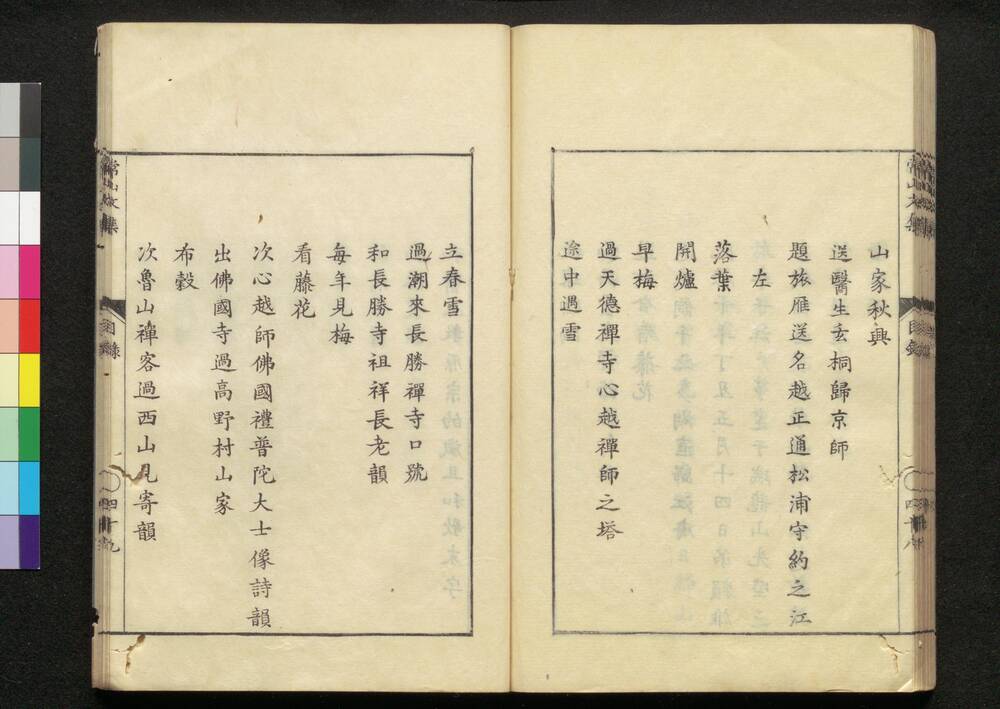 山家秋興
送醫生玄桐歸京師
題旅雁送名越正通松浦守約之江
左
落葉
開爐
早梅
過天德禪寺心越禪師之塔
途中遇雪
常山文集
目錄
四十八
立春雪
過潮來長勝禪寺口號
和長勝寺祖祥長老韻
每年見梅
看藤花
次心越師佛國禮普陀大士像詩韻
出佛國寺過高野村山家
布穀
次魯山禪客過西山見寄韻
常山文集
目錄
四十九